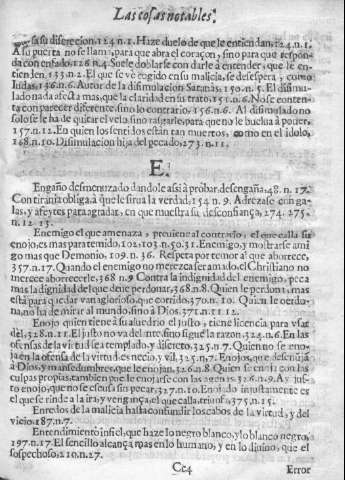 Las cosas notables.
su discrecion. 124. n. 1. Haze duelo de que le entiendan. 124. n. 1.
A su puerta no se llama, para que abra el coraçon, sino para que
da con enfado. 126. n. 4. Suele doblarse con darle à entender, que le en-
tienden. 133. n. 2. El que se vè cogido en su malicia, se desespera, como
Iudas. 136. n. 6. Autor de la dissimulacion Satanàs. 150. n. 5. El dissimu-
lado nada afecta mas, que la claridad en su trato. 151. n. 6. No se conten-
ta con parecer diferente, sino lo contrario. 156. n. 6. Al dissimulado no
solo se le ha de quitar el velo, sino rasgarle, para que no le buelua à poner.
157. n. 12. En quien los sentidos estàn tan muertos, como en el idolo,
168. n. 10. Dissimulacion hija del pecado. 273. n. 11.
E.
Engaño desmenuzado dandole assi à probar, desengaña. 48. n. 17.
Con tirania obliga, à que le sirua la verdad. 154. n. 9. Adrezase con ga-
las, y afeytes para agradar, en que muestra su desconfiança, 274. 275.
n. 12. 13.
Enemigo el que amenaza, preuiene al contrario, el que calla su
enojo, es mas para temido. 102. 103. n. 50. 51. Enemigo, y mostrarse ami
go mas que Demonio. 109. n. 36. Respeta por temor al que aborrece,
357. n. 17. Quando el enemigo no mereze ser amado, el Christiano no
merece aborrecerle. 368. n. 9. Contra la indignidad del enemigo, peca
mas la dignidad del que deue perdonar, 368. n. 8. Quien le perdona, mas
està para quedar vanaglorioso, que corrido. 370. n. 10. Quien le perdo-
na, no ha de mirar al mundo, sino à Dios. 371. n. 11. 12.
Enojo quien tiene à su aluedrio el justo, tiene licencia para vsar
dèl. 328. n. 11. El justo no và delante, sino sigue la razon. 324. n. 6. En las
ofensas de la virtud sea templado, y discreto. 325. n. 7. Quien no se eno-
ja en la ofensa de la virtud es necio, y vil. 325. n. 7. Enojos, que
à Dios, y mansedumbres, que le enojan. 326. n. 8. Quien se enoja con las
culpas propias, tambien que le enojasse con las agenas. 326. n. 9. Ay jus-
to enojo, que no se escusa sin pecar. 327. n. 10. Enojado injustamente es
el que se rinde a la ira, y vengança, el que calla, triunfa. 375. n. 15.
Enredos de la malicia hasta confundir los cabos de la virtud, y del
vicio. 187. n. 7.
Entendimiento infiel, que haze lo negro blanco, y lo blanco negro,
197. n. 17. El sencillo alcança mas en lo humano, y en lo diuino, que el
sospechoso, 210. n. 27.
Cc4 Error